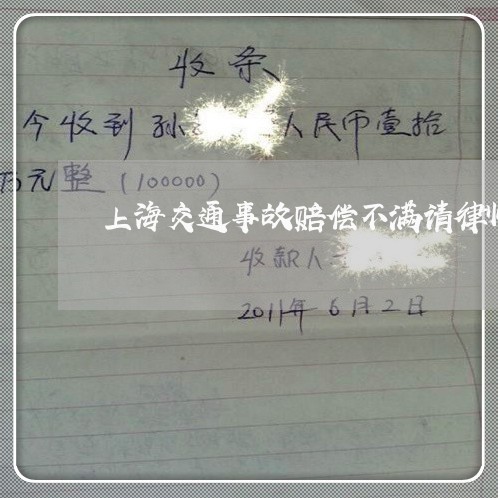 收条
今收到孙 人民币壹拾
万元整(100000)
上海交通事故赔偿不满请律
收款人
2011年6月2日